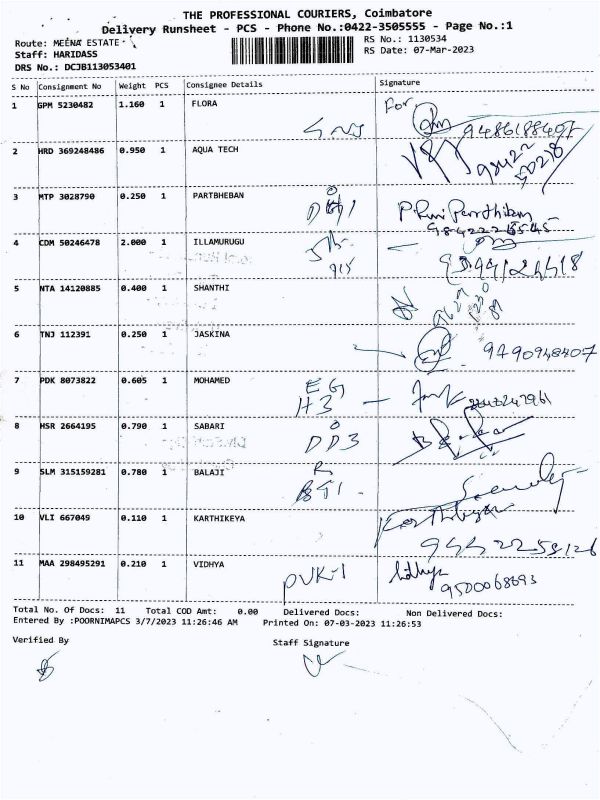 THE PROFESSIONAL COURIERS, Coimbatore
Delivery Runsheet - PCS - Phone No.:0422-3505555 - Page No.:1
Route: MEENA ESTATE
RS No.: 1130534
Staff: HARIDASS
RS Date: 07-Mar-2023
DRS No.: DCJB113053401
S No Consignment No Weight PCS Consignee Details Signature
1 GPM 5230482 1.160 1 FLORA For
9486188407
2 HRD 369248486 0.950 1 AQUA TECH
3 MTP 3028790 0.250 1 PARTBHEBAN
4 CDM 50246478 2.000 1 ILLAMURUGU
5 NTA 14120885 0.400 1 SHANTHI
6 TNJ 112391 0.250 1 JASKINA
9790948407
7 PDK 8073822 0.605 1 MOHAMED EG
H3
8 HSR 2664195 0.790 1 SABARI
DD3
9 SLM 315159281 0.780 1 BALAJI R
10 VLI 667049 0.110 1 KARTHIKEYA
11 MAA 298495291 0.210 1 VIDHYA PVK-1
9500068693
Total No. Of Docs: 11 Total COD Amt: 0.00 Delivered Docs: Non Delivered Docs:
Entered By :POORNIMAPCS 3/7/2023 11:26:46 AM Printed On: 07-03-2023 11:26:53
Verified By Staff Signature